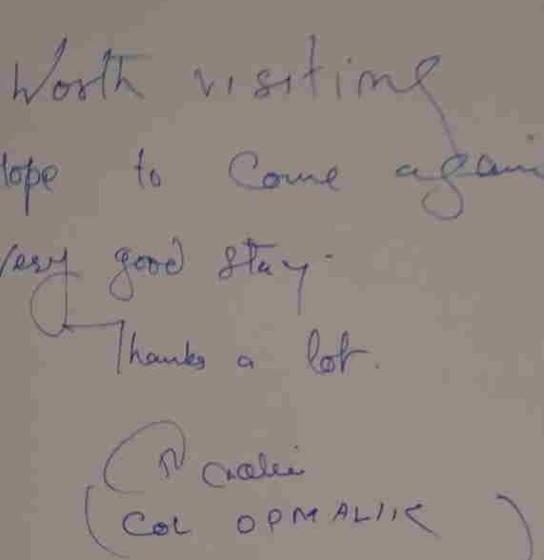 Worth visiting
Hope to come again
Very good stay.
Thanks a lot.
(COL OPMALIK)